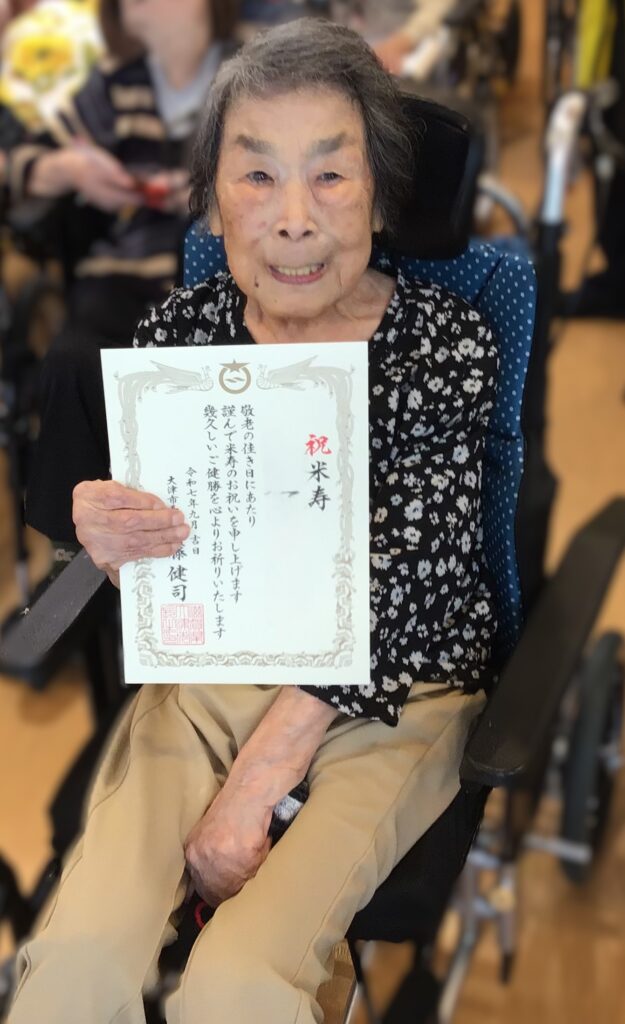 祝 米寿
敬老の佳き日にあたり
謹んで米寿のお祝いを申し上げます
幾久しいご健勝を心よりお祈りいたします
令和七年九月吉日
大津市
健司